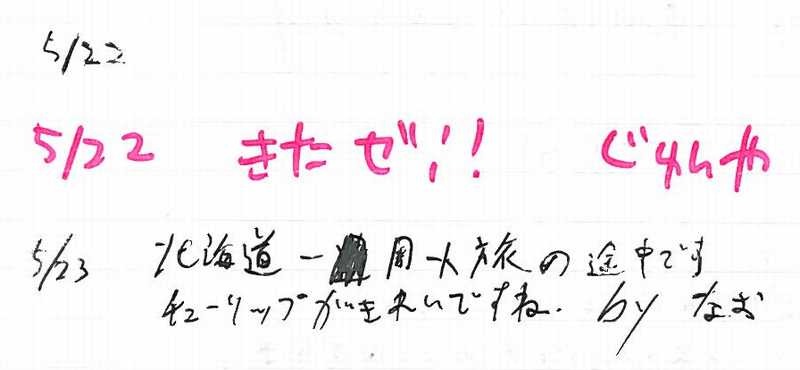 5/22
5/22 きたぜ!! ぐんや
5/23 北海道一周一人旅の途中です
チューリップがきれいですね. by なお